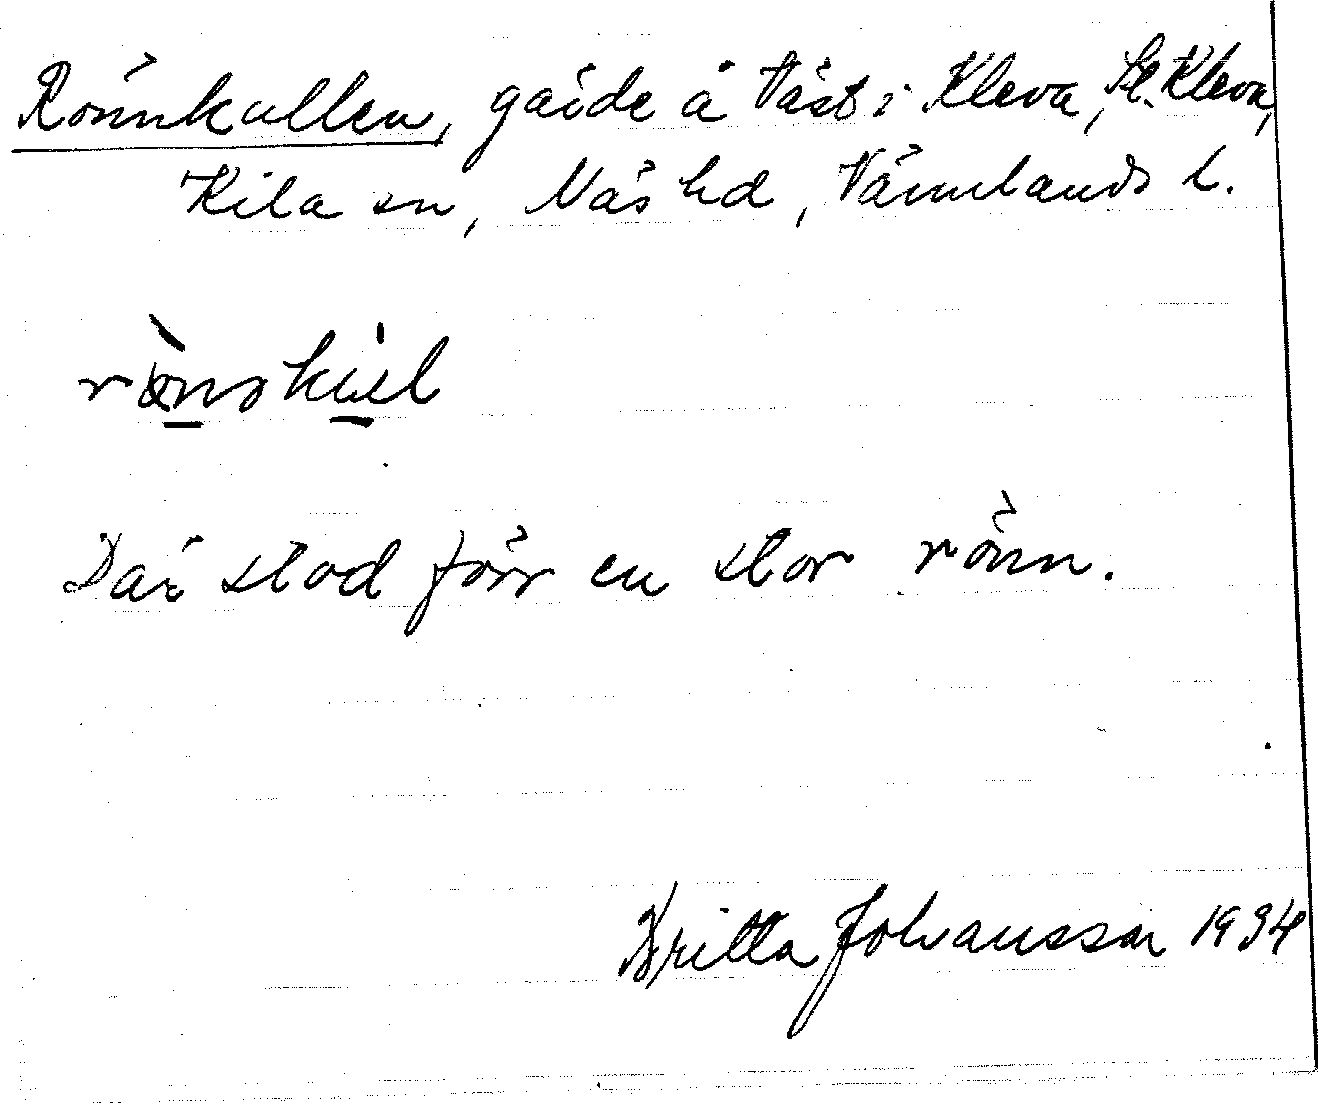 Rönnkullen, gärde å Väst i Kleva, St. Kleva,
Kila sn, Näs hd, Värmlands l.
Där stod förr en stor rönn.
Britta Johansson 1934